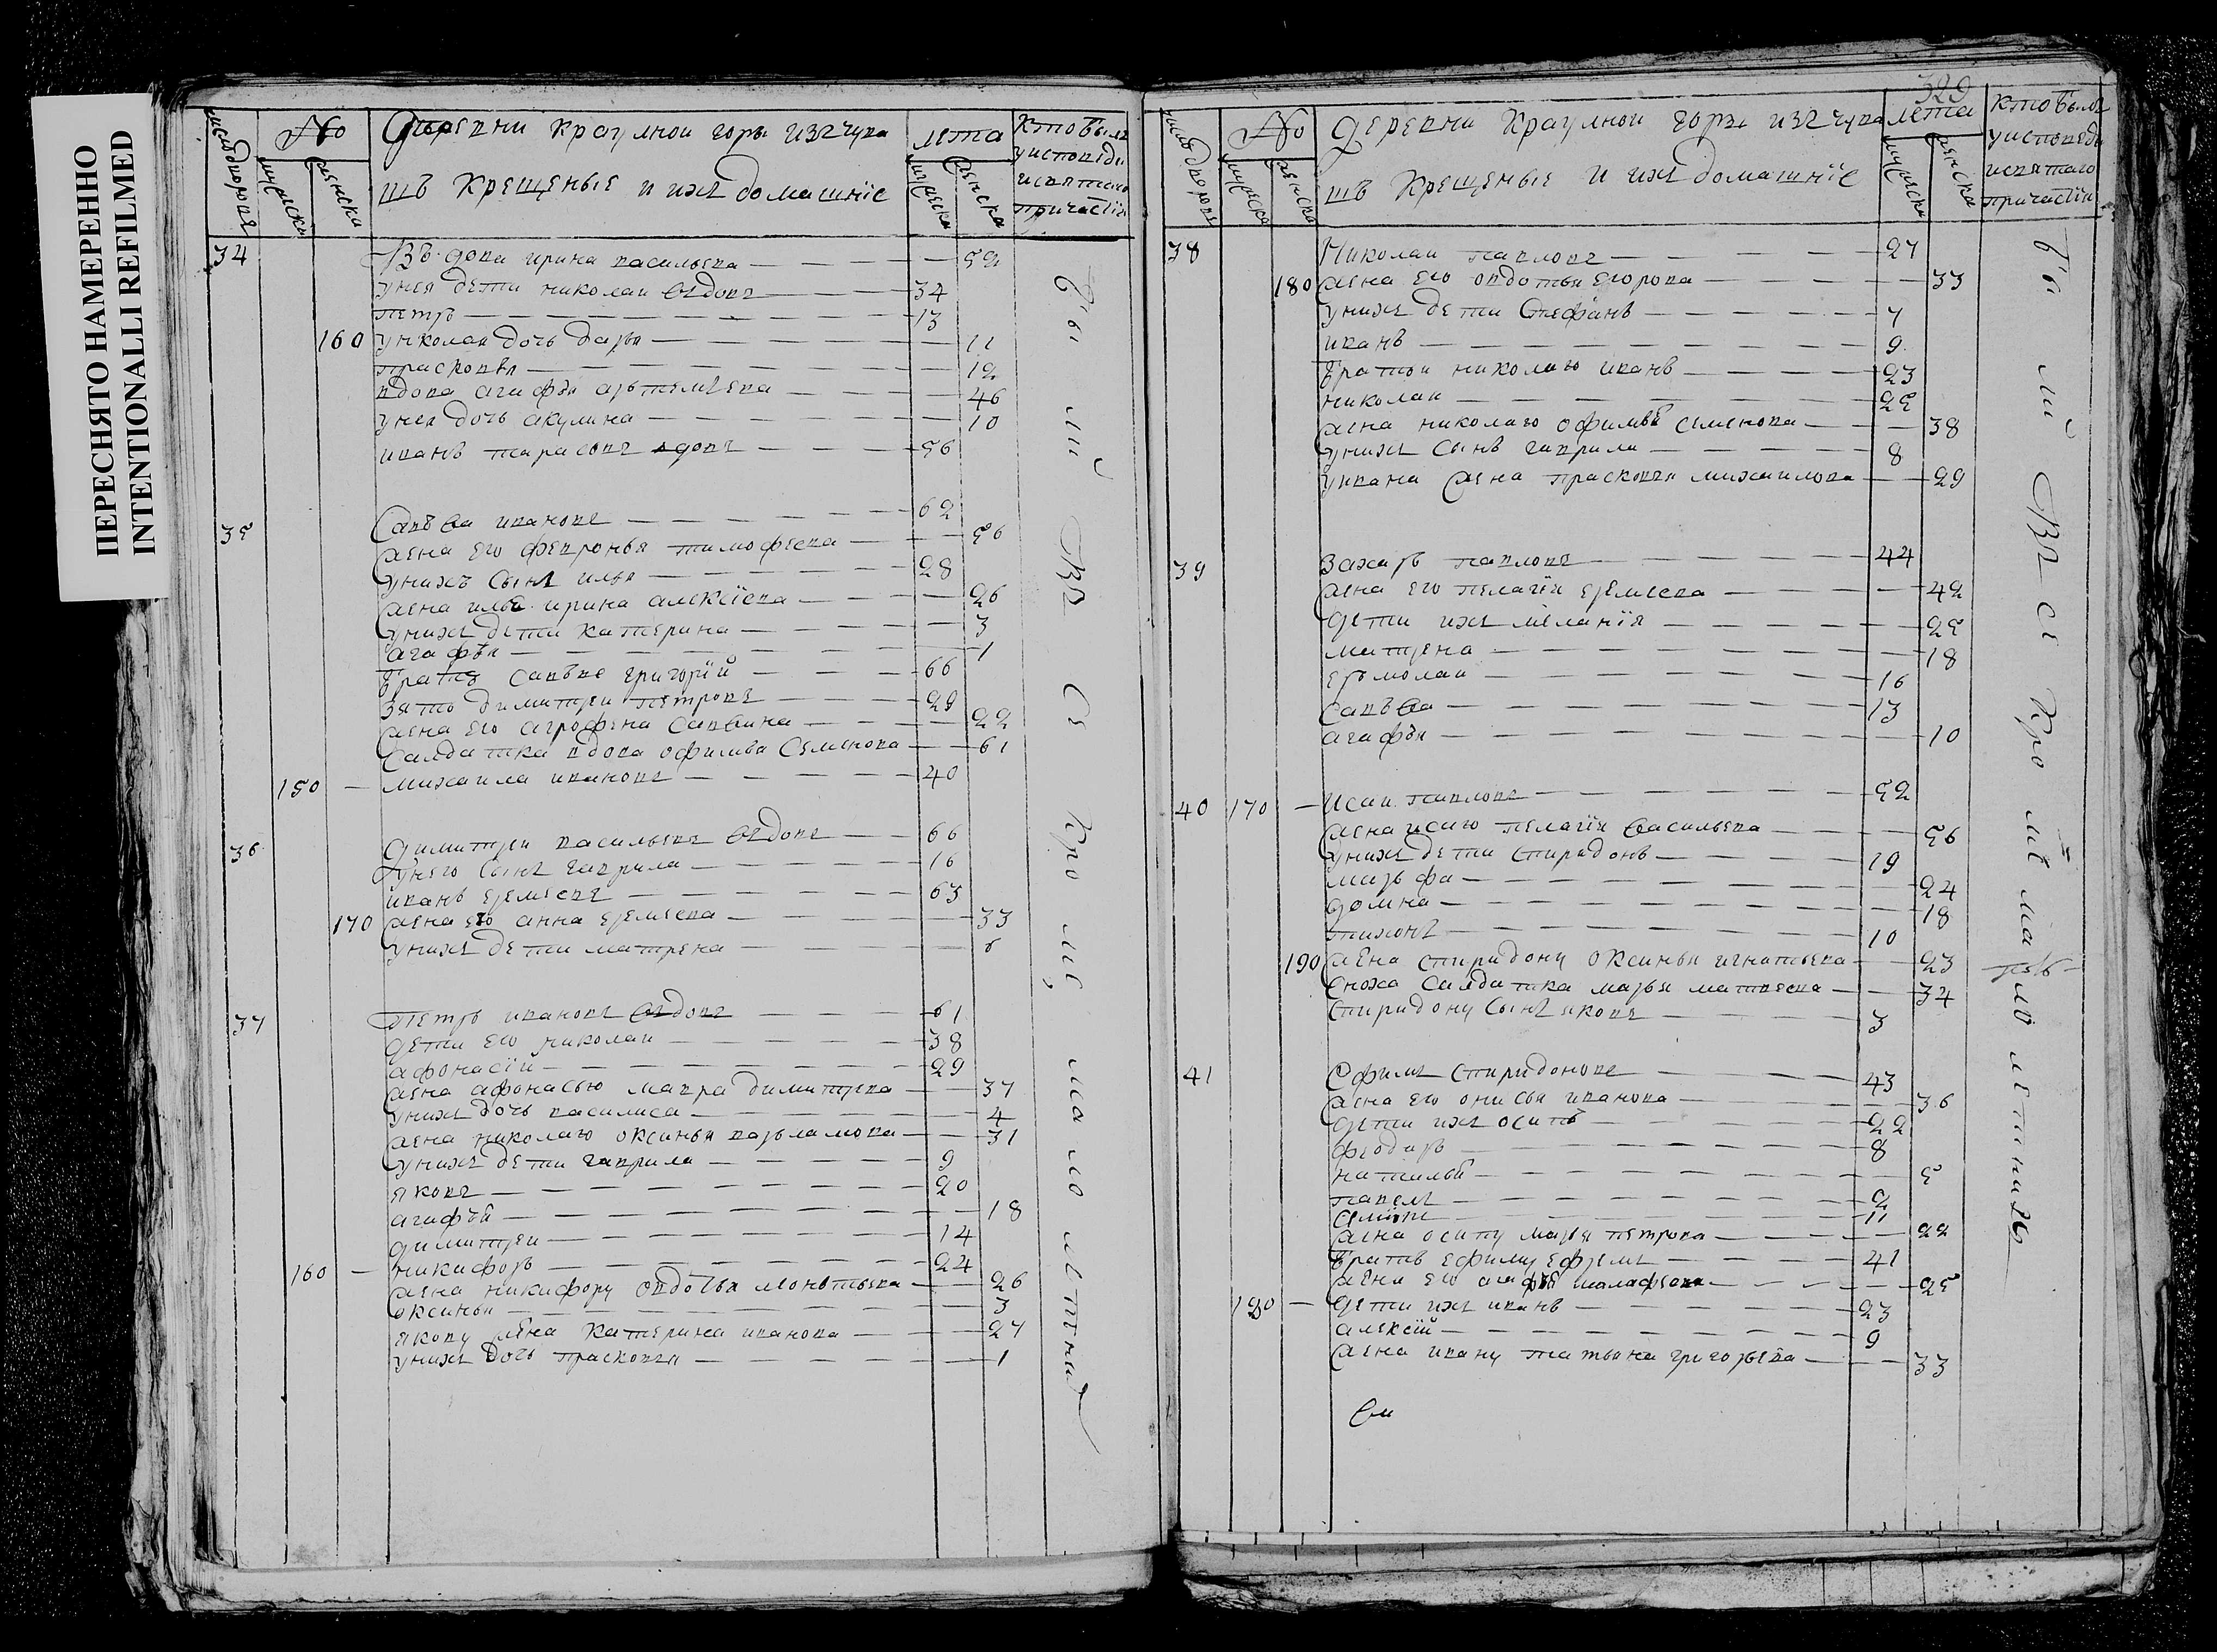 ПЕРЕСНЯТО НАМЕРЕННО
INTENTIONALLI REFILMED
№
Деревни Краулнои горы изъ чува
шъ Крещеные и ихъ домашнїе
лета
кто былъ
у исповеди
и святаго
причастїя
мужеска
женска
мужеска
женска
34 Въдова ирина васильева — 52
у нея дети николаи вдовъ — 34
петръ — 13
160 у николая дочь дарья — 11
прасковья — 12
вдова агафья артемьева — 46
у нея дочь акулина — 10
иванъ тарасовъ вдовъ — 56
35 Савва ивановъ — 62
жена его февронья тимофеева — 56
у нихъ сынъ илья — 28
жена илье ирина алексїева — 26
у нихъ дети катерина — 3
агафья — 1
братъ савве григорїй — 66
зять димитреи петровъ — 29
жена его агрофена саввина — 22
салдатка вдова офимья семенова — 61
150 — михаила ивановъ — 40
36 димитреи васильевъ вдовъ — 66
у него сынъ гаврила — 16
иванъ еремеевъ — 63
170 жена его анна еремеева — 33
у нихъ дети матрена — 6
37 петръ ивановъ вдовъ — 61
дети его николаи — 38
афонасїй — 29
жена афонасью мавра димитрева — 37
у нихъ дочь василиса — 4
жена николаю оксинья варламова — 31
у нихъ дети гаврила — 9
яковъ — 20
агафья — 18
димитреи — 14
160 — никифоръ — 24
жена никифору овдотья — 26
оксинья — 3
якову жена катерина иванова — 27
у нихъ дочь прасковья — 1
были все кроме малолетнихъ
329
№
деревни Краулнои горы изъ чува
шъ Крещеные и ихъ домашнїе
лета
кто былъ
у исповеди
и святаго
причастїя
мужеска
женска
мужеска
женска
38 Николаи павловъ — 27
180 жена его овдотья егорова — 33
у нихъ дети стефанъ — 7
иванъ — 9
братья николаю иванъ — 23
николаи — 25
жена николаю офимья семенова — 38
у нихъ сынъ гаврила — 8
у ивана жена прасковья михаилова — 29
39 захаръ павловъ — 44
жена его пелагїя еремеева — 42
дети ихъ меланїя — 25
матрена — 18
ермолаи — 16
савва — 13
агафья — 10
40 170 — исаи павловъ — 52
жена исаю пелагїя васильева — 56
у нихъ дети спиридонъ — 19
марфа — 24
домна — 18
тихонъ — 10
190 жена спиридону оксинья игнатьева — 23
сноха салдатка марья матвеева — 34
спиридону сынъ яковъ — 3
41 Ефимъ спиридоновъ — 43
жена его онисья иванова — 36
дети ихъ осипъ — 22
федоръ — 8
наталья — 5
павелъ — 2
семенъ — 11
жена осипу марья петрова — 22
братъ ефиму ефремъ — 41
жена его агафья — 25
180 — дети ихъ иванъ — 23
алексїй — 9
жена ивану татьяна григорьева — 33
были все кроме малолетнихъ